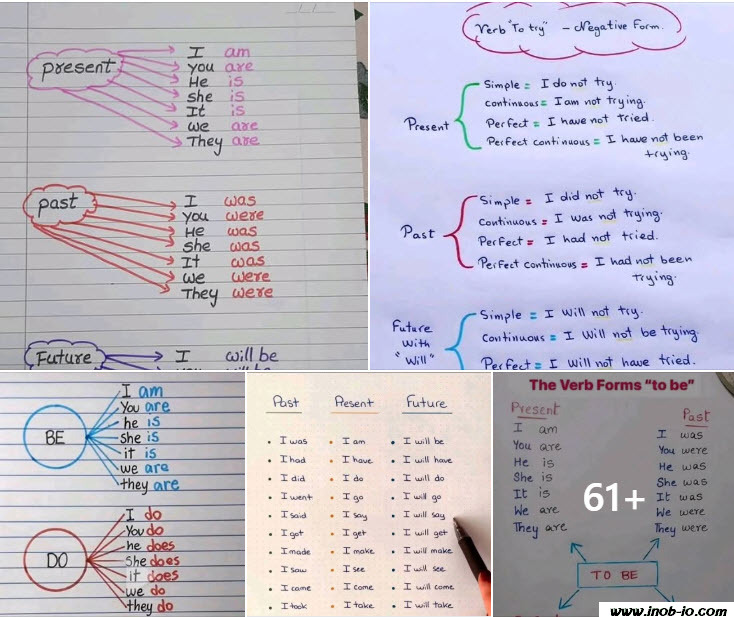 present
I am
you are
He is
she is
It is
we are
They are
past
I was
you were
He was
she was
It was
we were
They were
Future
I will be
Verb "To try" – Negative Form.
Present
Simple = I do not try.
continuous = I am not trying.
Perfect = I have not tried.
Perfect continuous = I have not been
trying.
Past
Simple = I did not try.
Continuous = I was not trying.
Perfect = I had not tried.
Perfect Continuous = I had not been
Trying.
Future
with
"Will"
Simple = I Will not try.
Continuous = I Will not be trying.
Perfect = I will not have tried.
BE
I am
You are
he is
she is
it is
we are
they are
DO
I do
You do
he does
She does
it does
we do
they do
Past Present Future
I was I am I will be
I had I have I will have
I did I do I will do
I went I go I will go
I said I say I will say
I got I get I will get
I made I make I will make
I saw I see I will see
I came I come I will come
I took I take I will take
The Verb Forms "to be"
Present
I am
You are
He is
She is
It is
We are
They are
Past
I was
You were
He was
She was
It was
We were
They were
61+
TO BE
www.inob-io.com